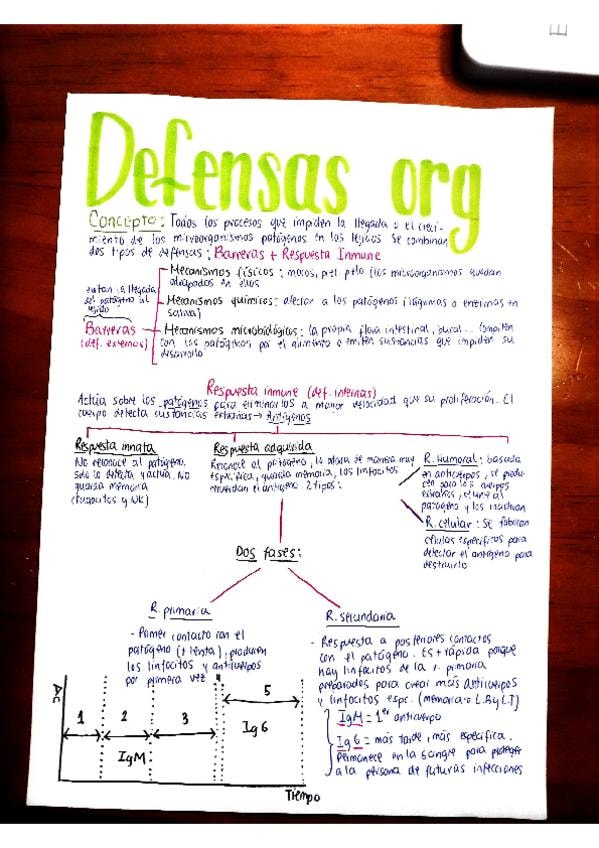 Defensas org
Concepto: Todos los procesos que impiden la llegada o el creci-
miento de los microorganismos patógenos en los tejidos. Se combinan
dos tipos de defensas: Barreras + Respuesta Inmune
Mecanismos físicos: mocos, piel, pelo (los microorganismos quedan
atrapados en ellos
evitan la llegada
del patógeno al
tejido
Mecanismos químicos: afectar a los patógenos (lágrimas o enzimas en
saliva)
Barreras
(def. externas)
Mecanismos microbiológicos: la propia flora intestinal, bucal... compiten
con los patógenos por el alimento o emiten sustancias que impiden su
desarrollo
Respuesta inmune (def. internas)
Actúa sobre los patógenos para eliminarlos a mayor velocidad que su proliferación. El
cuerpo detecta sustancias extrañas → Antígenos
Respuesta innata
No reconoce al patógeno,
solo lo detecta y actúa. No
guarda memoria
(fagocitos y NK)
Respuesta adquirida
Reconoce al patógeno, lo ataca de manera muy
específica, guarda memoria, los linfocitos
recuerdan el antígeno. 2 tipos:
R. humoral: basada
en anticuerpos, se produ-
cen para los cuerpos
extraños, se une al
patógeno y los inactivan
R. celular: Se fabrican
células específicas para
detectar el antígeno para
destruirlo
Dos fases:
R. primaria
- Primer contacto con el
patógeno (+ lenta): producen
los linfocitos y anticuerpos
por primera vez
R. secundaria
- Respuesta a posteriores contactos
con el patógeno. Es + rápida porque
hay linfocitos de la r. primaria
preparados para crear más anticuerpos
y linfocitos espc. (memoria → L.B y L.T)
IgM = 1er anticuerpo
Ig G = más tarde, más específica.
Permanece en la sangre para proteger
a la persona de futuras infecciones
Ac
1 2 3 4 5
IgM
Ig G
Tiempo